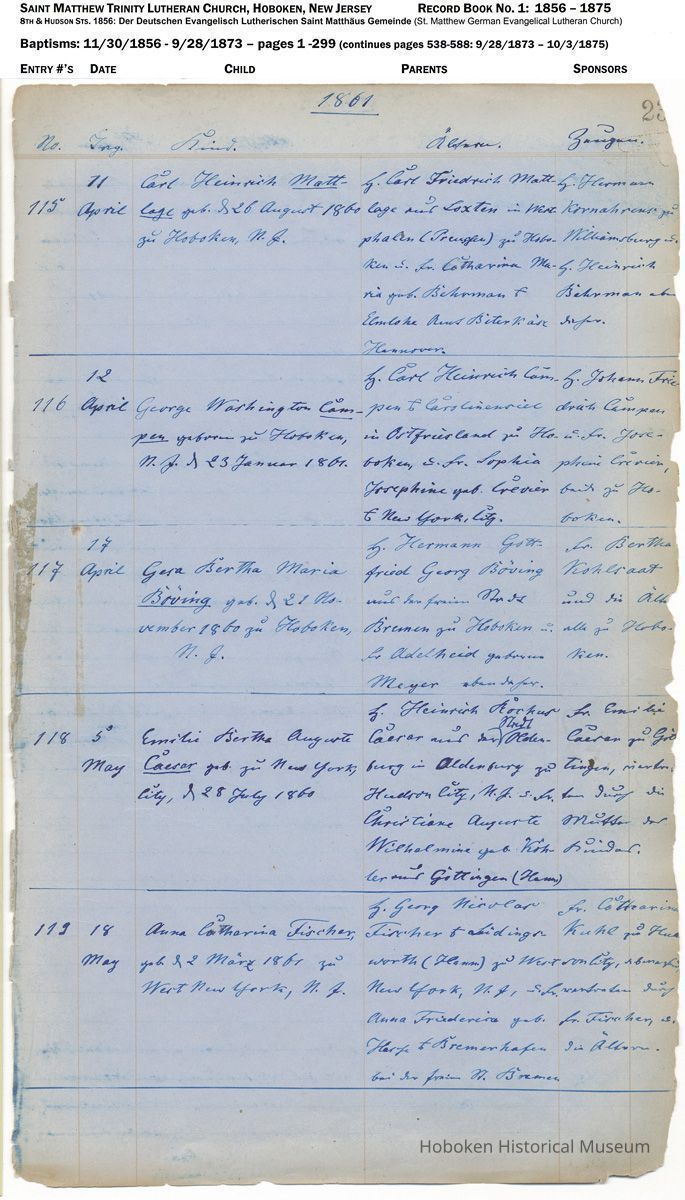 SAINT MATTHEW TRINITY LUTHERAN CHURCH, HOBOKEN, NEW JERSEY RECORD BOOK NO. 1: 1856 – 1875
8TH & HUDSON STS. 1856: Der Deutschen Evangelisch Lutherischen Saint Matthäus Gemeinde (St. Matthew German Evangelical Lutheran Church)
Baptisms: 11/30/1856 - 9/28/1873 – pages 1 -299 (continues pages 538-588: 9/28/1873 – 10/3/1875)
ENTRY #'S DATE CHILD PARENTS SPONSORS
1861
23
No. Tag. Kind. Ältern. Zeugen.
115
11
April
Carl Heinrich Matt-
lage geb. d 26 August 1860
zu Hoboken, N. J.
H. Carl Friedrich Matt-
lage aus Loxten in West
phalen (Preußen) zu Hobo-
ken u. Fr. Catharina Ma-
ria geb. Behrman
Hannover.
H. Hermann
Kornahrens zu
Williamsburg u.
H. Heinrich
Behrman
116
12
April
George Washington Cam-
pen geboren zu Hoboken,
N. J. d 23 Januar 1861.
H. Carl Heinrich Cam-
pen Carolinensiel
in Ostfriesland zu Ho-
boken, u. Fr. Sophia
Josephine geb. Crevier
New York, City.
H. Johann Frie
drich Campen
u. Fr. Jose-
phine Crevier,
beide zu Ho-
boken.
117
17
April
Gesa Bertha Maria
Böving geb. d 21 No-
vember 1860 zu Hoboken,
N. J.
H. Hermann Gott-
fried Georg Böving
aus der freien Stadt
Bremen zu Hoboken u.
Fr Adelheid geborene
Meyer ebendaher.
Fr. Bertha
Kohlsaat
und die Ält
zu Hobo-
ken.
118
5
May
Emilie Bertha Auguste
Caesar geb. zu New York,
City, d 28 July 1860
H. Heinrich Rochus
Caesar aus der Stadt Olden-
burg in Oldenburg zu
Hudson City, N. J. u. Fr.
Christiane Auguste
Wilhelmine geb. Köh-
ler aus Göttingen (Hann)
Fr. Emilie
Caesar zu Göt
tingen, vertre-
ten durch die
Mutter des
Kindes.
119
18
May
Anna Catharina Fischer,
geb. d 2 März 1861 zu
West New York, N. J.
H. Georg Nicolas
Fischer
worth (Hann) zu West
New York, N. J., u. Fr.
Anna Friederica geb.
Bremerhafen
bei der freien St. Bremen
Fr. Catharina
Kuhl zu Hud
son City,
vertreten durch
Fr. Fischer, u.
die Ältern.
Hoboken Historical Museum